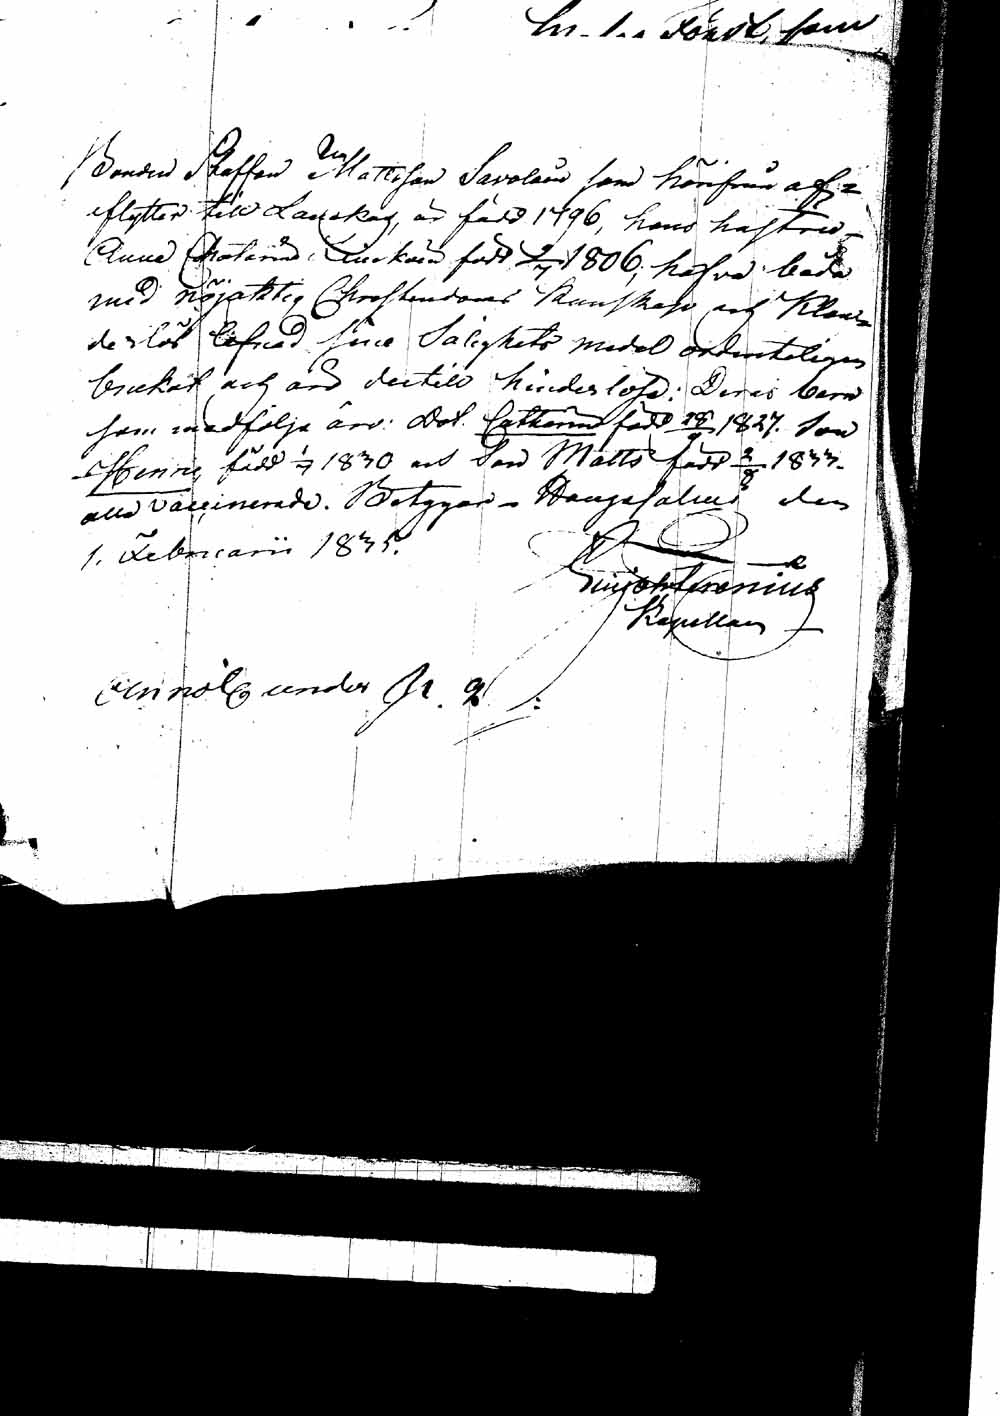 Bonden Staffan Mattsson Savolain som härifrån af=
flyttar till Lauskog, är född 1796, hans hustru
Anna Catarina född 2/7 1806, hafva båda
med nöjaktig Christendoms Kunskap och Klan=
derlös lefnad sine Salighets medel ordenteligen
brukat och äro dertill hinderlösa. Deras barn
som medfölja äro: Dot. Catharina född 1827. Son
Henric, född 1/7 1830 och Son Matts född 2/8 1833.
alla Vaccinerade. Betygar Haugasalmi den
1. Februarii 1835.
Krenius
Kapellan
Annot. under Nr. 2